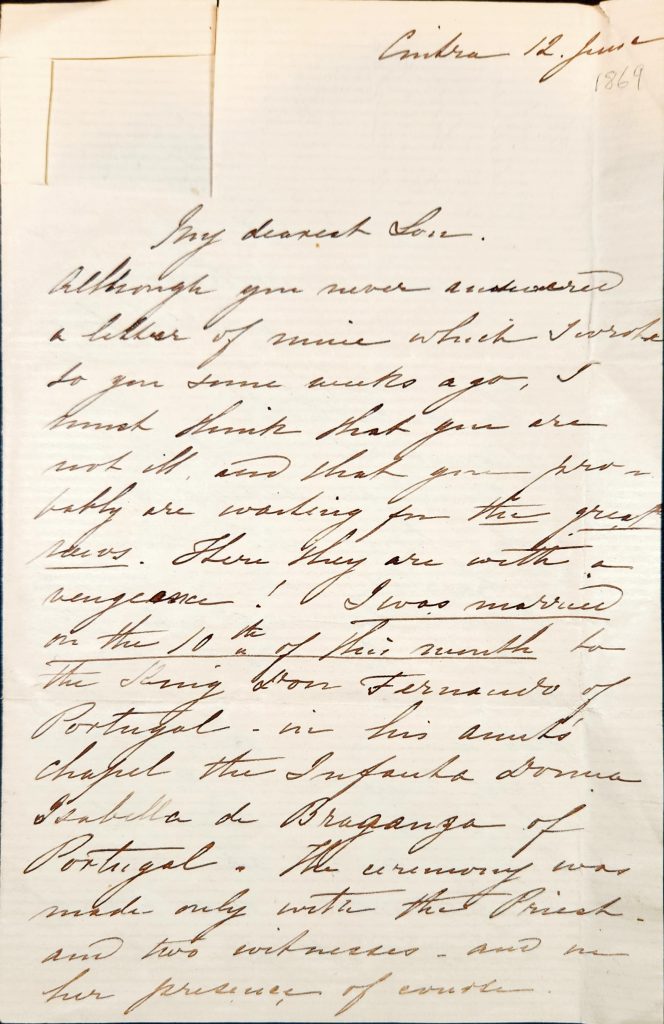 Cintra 12. June
1869
My dearest Lou.
Although you never answered
a letter of mine which I wrote
to you some weeks ago, I
must think that you are
not ill, and that you pro-
bably are waiting for the great
news. Here they are with a
vengeance! I was married
on the 10th of this month to
the King Don Fernando of
Portugal - in his aunt's
chapel the Infanta Donna
Isabella de Braganza of
Portugal. The ceremony was
made only with the Priest -
and two witnesses - and in
her presence of course.